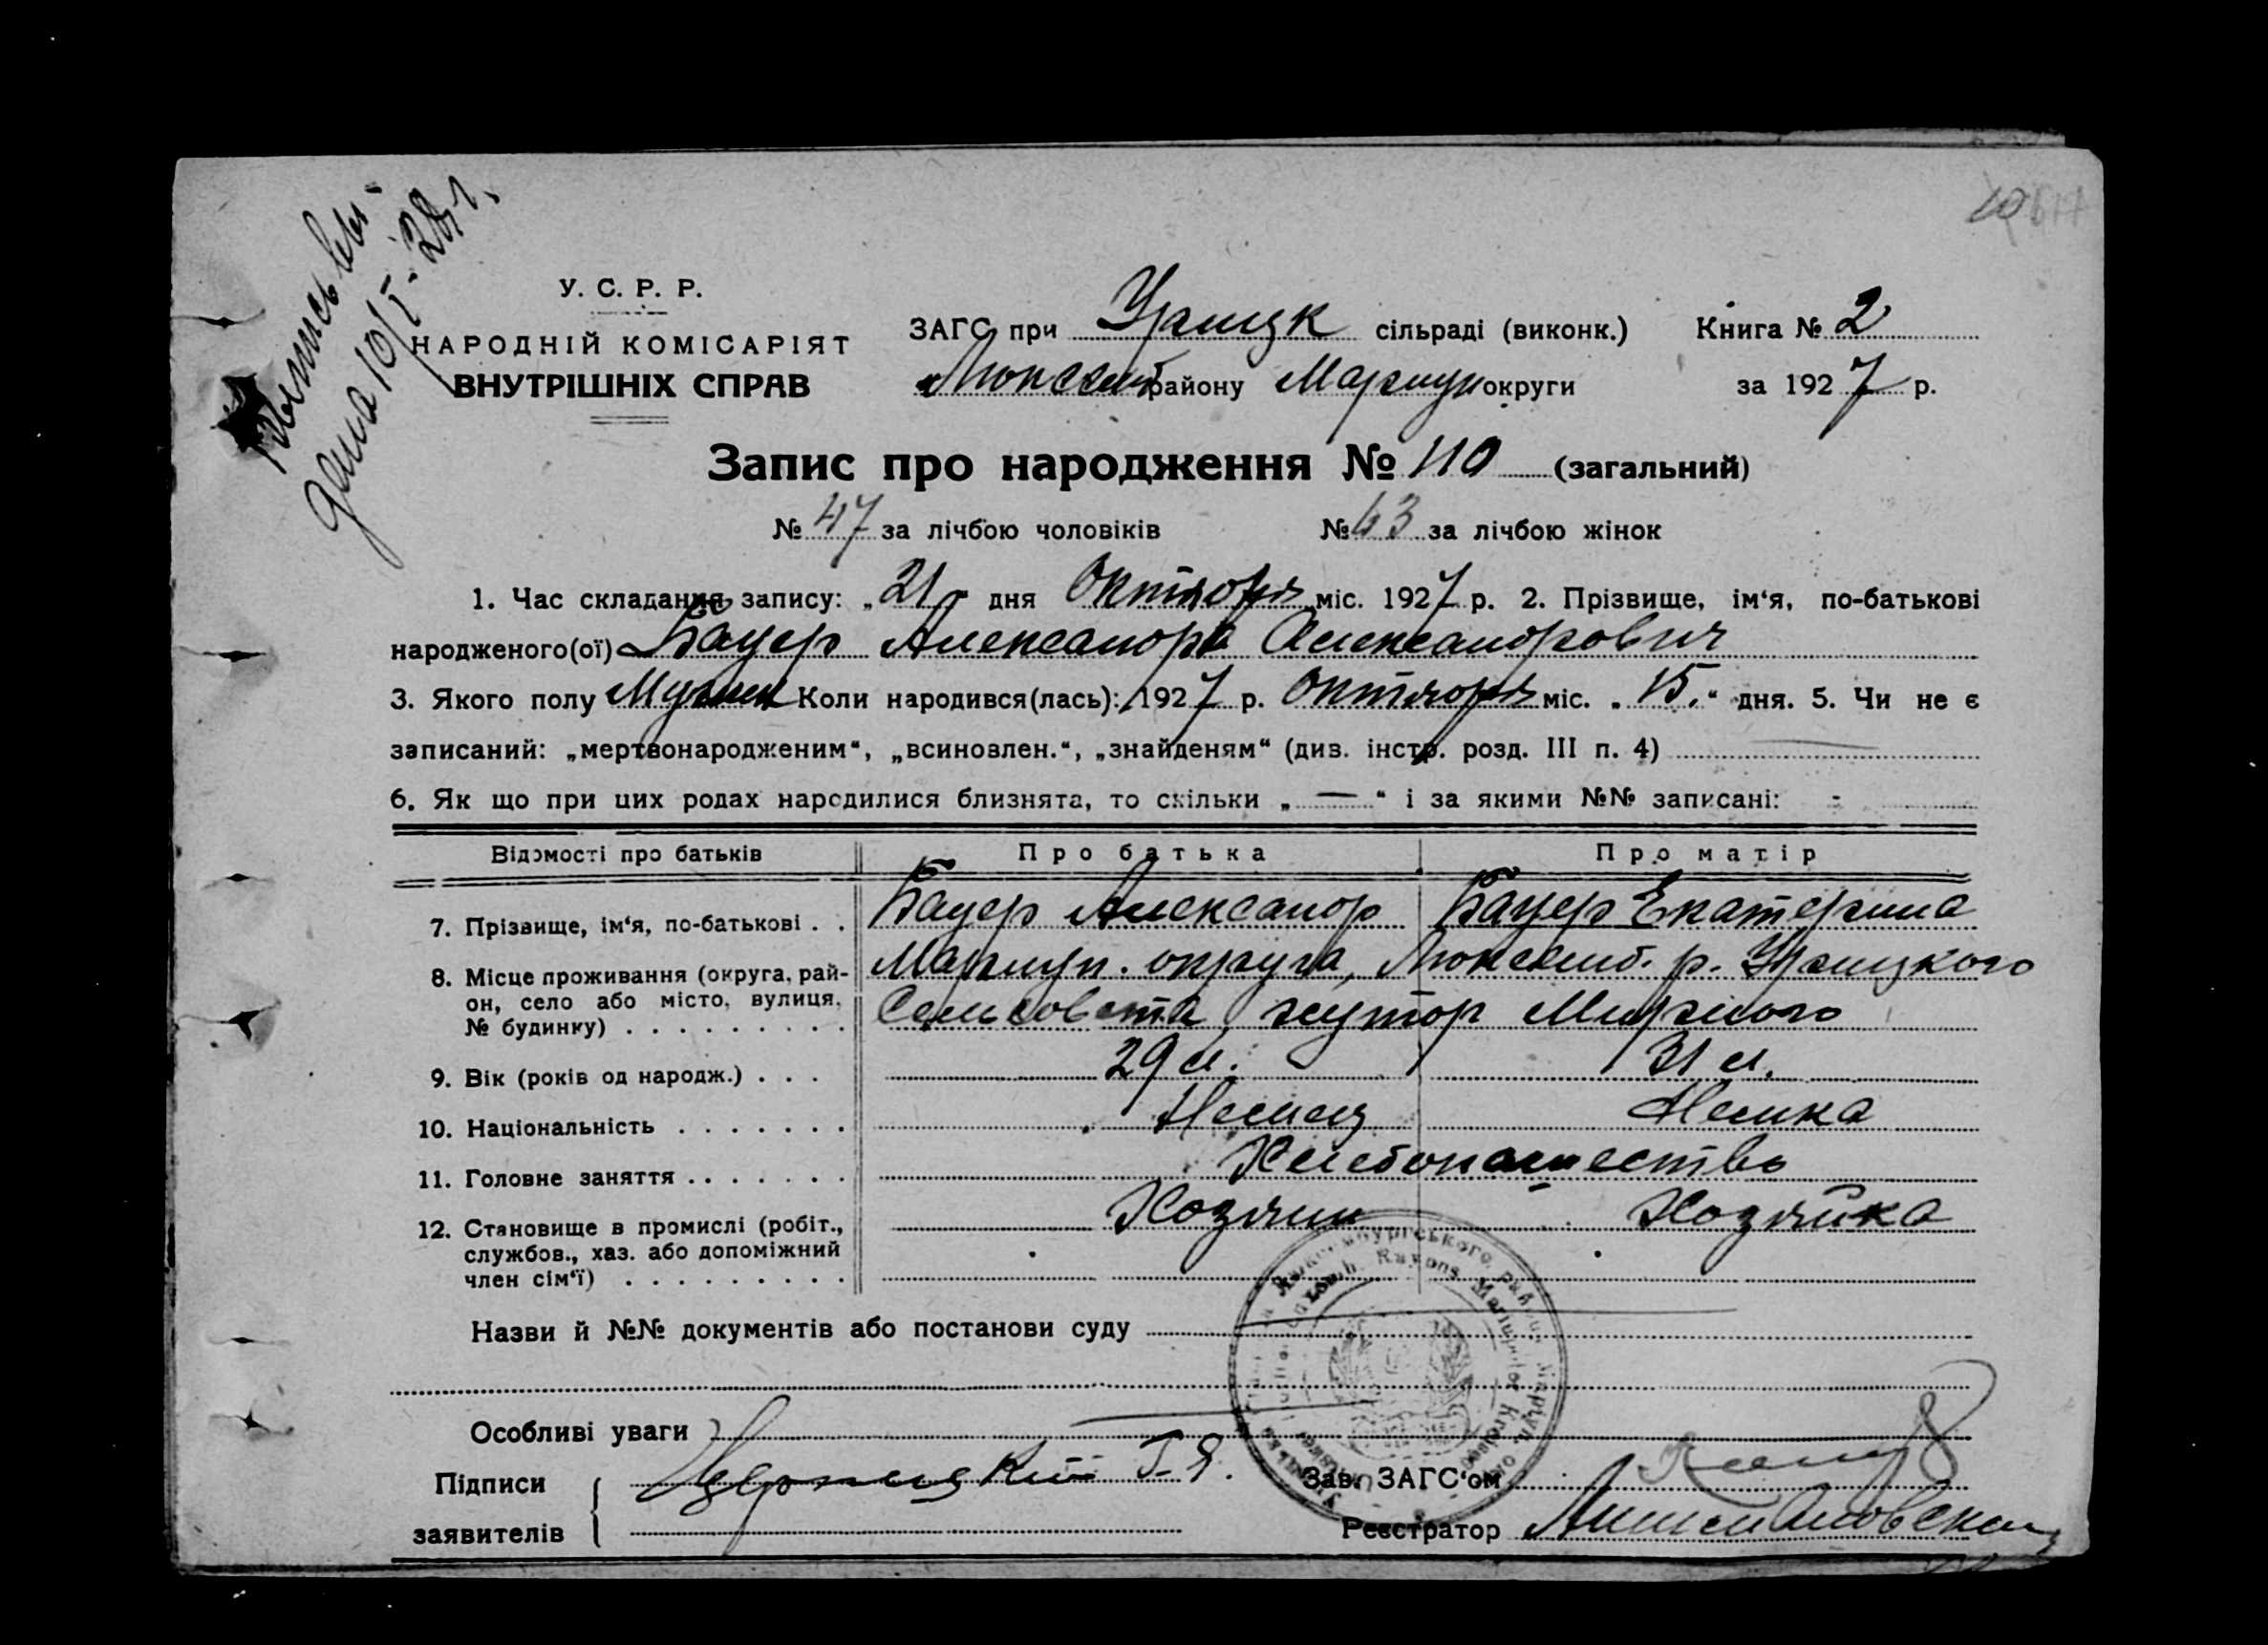 Выпись вы-
дена 10/I-28 г.
У. С. Р. Р.
НАРОДНІЙ КОМІСАРІЯТ
ВНУТРІШНІХ СПРАВ
ЗАГС при Урзицк сільраді (виконк.) Книга № 2
Люксемб району Мариуп округи за 1927 р.
Запис про народження № 110 (загальний)
№ 47 за лічбою чоловіків № 63 за лічбою жінок
1. Час складання запису: „21" дня Октября міс. 1927 р. 2. Прізвище, ім'я, по-батькові
народженого(ої) Бауер Александр Александрович
3. Якого полу Мужск Коли народився(лась): 1927 р. Октября міс. „15." дня. 5. Чи не є
записаний: „мертвонародженим", „всиновлен.", „знайденям" (див. інстр. розд. III п. 4)
6. Як що при цих родах народилися близнята, то скільки „—" і за якими №№ записані: -
Відомості про батьків Про батька Про матір
7. Прізвище, ім'я, по-батькові . . Бауер Александр Бауер Екатерина
8. Місце проживання (округа, рай- Мариуп. округа, Люксемб. р. Урзицкого
он, село або місто, вулиця, Сельсовета, хутор Мирного
№ будинку) . . . . . . . . .
9. Вік (років од народж.) . . . 29 л. 31 л.
10. Національність . . . . . . . Немец Немка
11. Головне заняття . . . . . . . Хлебопашество
12. Становище в промислі (робіт., Хозяин Хозяйка
службов., хаз. або допоміжний
член сім'ї) . . . . . . . . .
Назви й №№ документів або постанови суду
Особливі уваги
Підписи Г. Я. Зав. ЗАГС'ом
заявителів Реєстратор